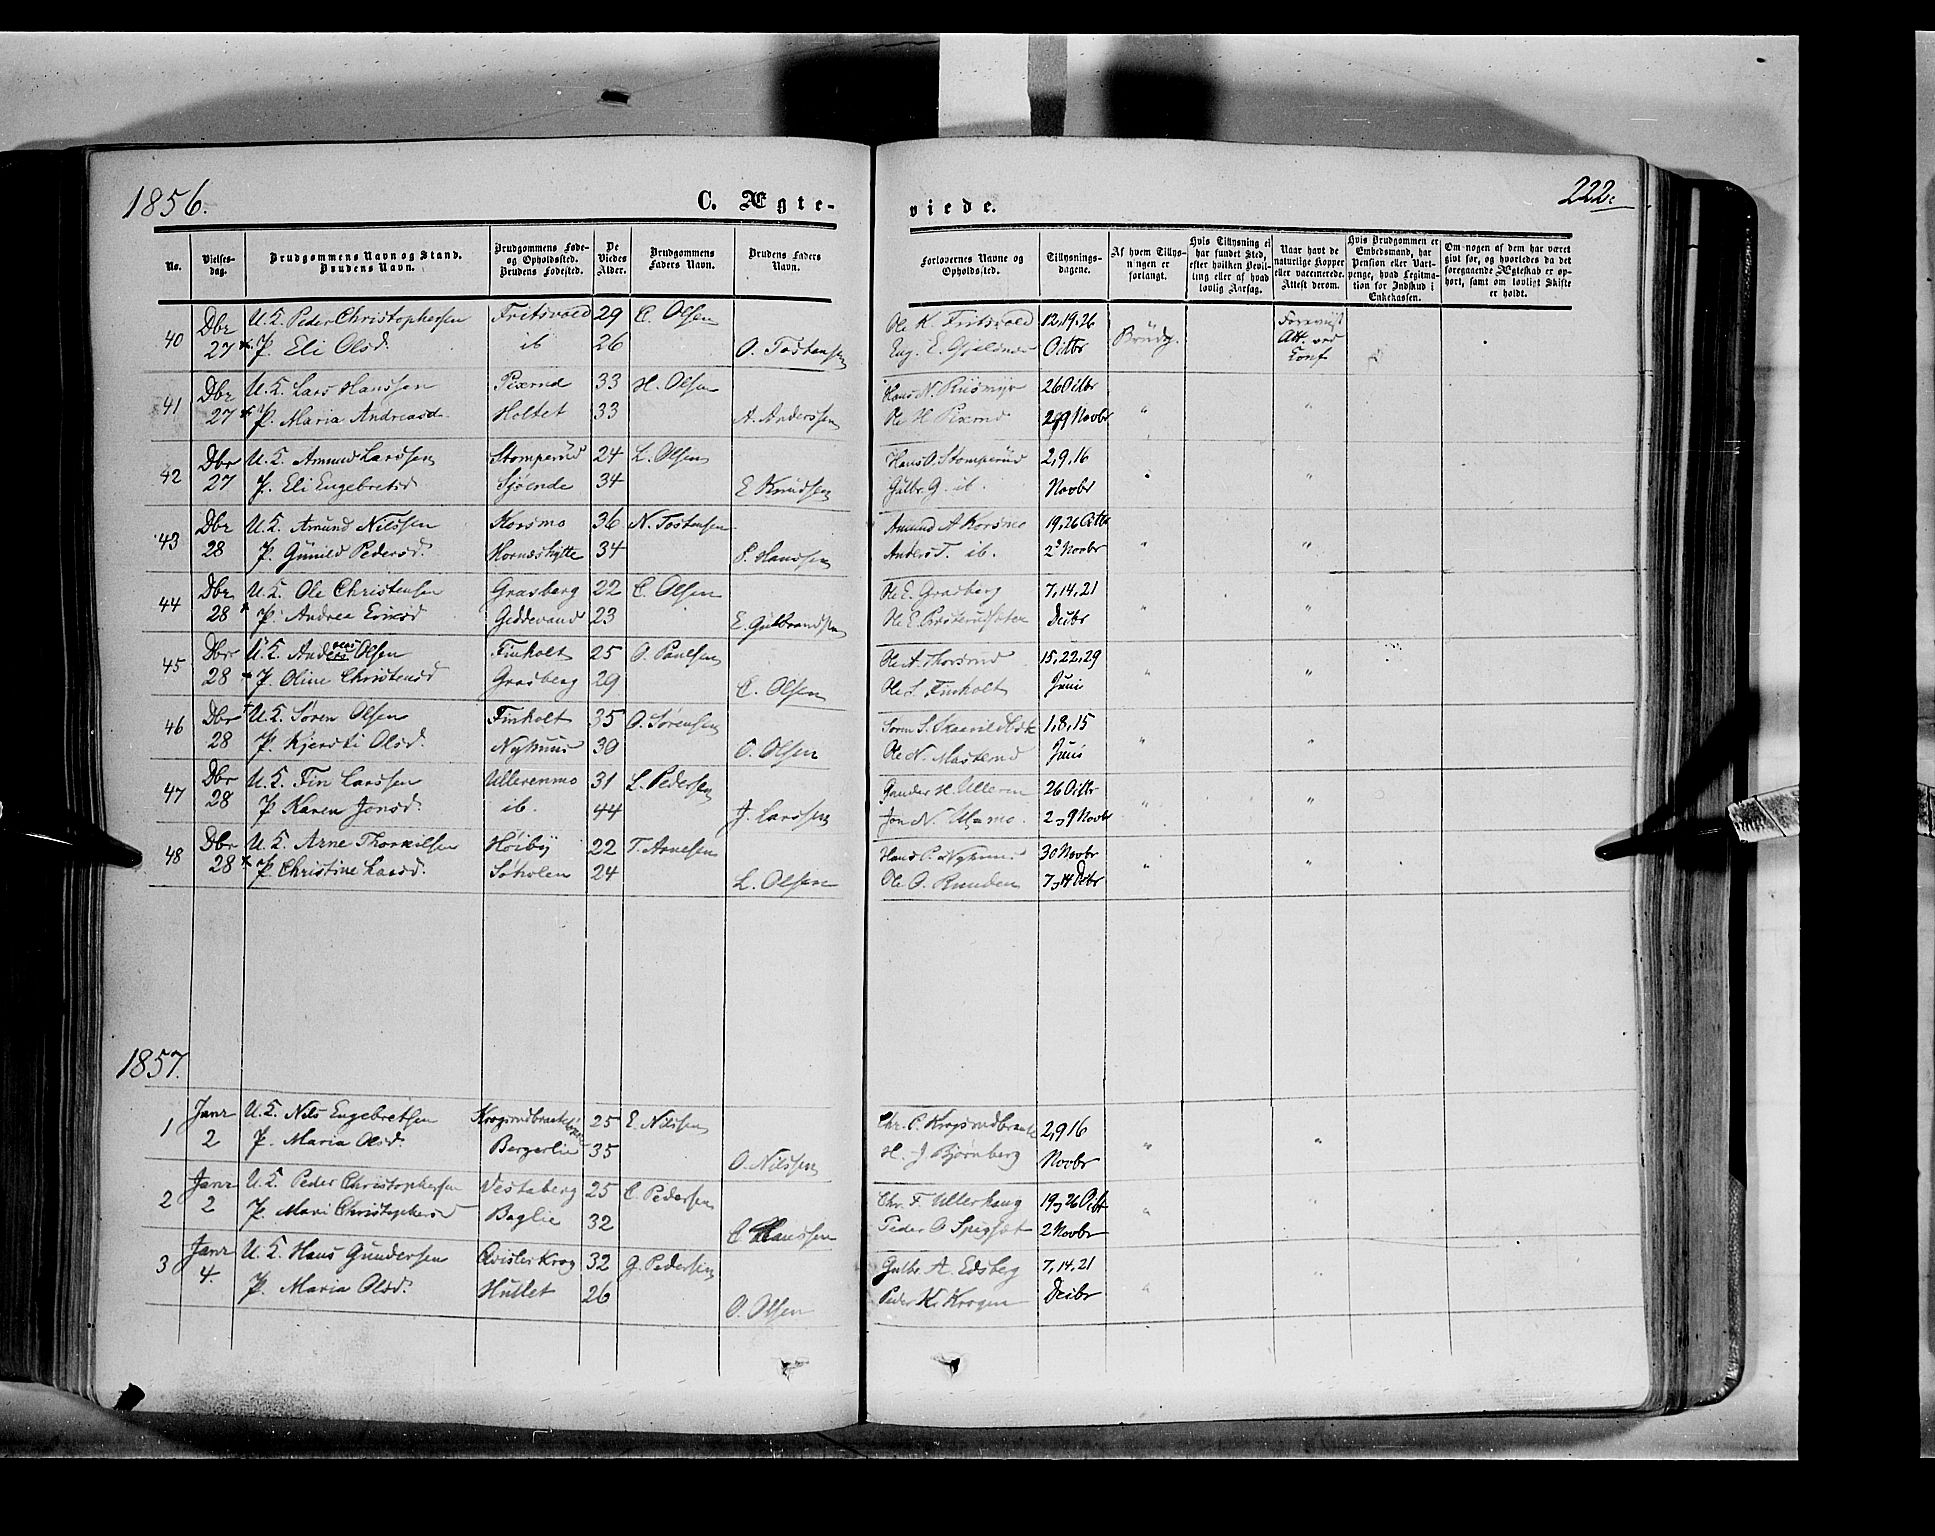 1856.
C. Ægte-
viede.
222.
No.
Vielses-
dag.
Brudgommens Navn og Stand.
Brudens Navn.
Brudgommens Føde-
og Opholdsted.
Brudens Fødested.
De
Viedes
Alder.
Brudgommens
Faders Navn.
Brudens Faders
Navn.
Forlovernes Navne og
Opholdsted.
Tillysnings-
dagene.
Af hvem Tillys-
ningen er
forlangt.
Hvis Tillysning ei
har fundet Sted,
efter hvilken Bevil-
ling eller af hvad
lovlig Aarsag.
Naar havt de
naturlige Kopper
eller vaccinerede.
Attest derom.
Hvis Brudgommen er
Embedsmand, har
Pension eller Vart-
penge, hvad Legitima-
tion for Indskud i
Enkekassen.
Om nogen af dem har været
givt før, og hvorledes da det
foregaaende Ægteskab er op-
hørt, samt om lovligt Skifte
er holdt.
40 Dbr U.K. Peder Christophersen Fritsvold 29 C. Olsen Ole K. Fritsvold 12,19,26
27 P. Eli Olsd. ib 26 O. Tostensen Octbr Brudg. Att. ved Conf
41 Dbr U.K. Lars Hanssen 33 H. Olsen Hans N. 26 Octbr
27 P. Maria Andreasd Holtet 33 A. Anderssen Ole H. 2,9 Novbr
42 Dbr U.K. Amund Larssen Stomperud 24 L. Olsen Hans O. Stomperud 2,9,16
27 P. Eli Engebretsd Sjøende 34 E Knudsen Gulbr G. ib. Novbr
43 Dbr U.K. Amund Nilssen Korsmo 36 N. Tostensen Amund A Korsmo 19,26 Octbr
28 P. Gunild Pedersd. Horneshytte 34 P. Hanssen Anders T. ib. 2 Novbr
44 Dbr U.K. Ole Christensen Grasberg 22 C. Olsen Ole E. Grasberg 7,14,21
28 P. Andrea Erixsd Geddevand 23 E. Gulbrandsen Ole E. Decbr
45 Dbr U.K. Anders Olsen Finholt 25 O. Paulsen Ole A. 15,22,29
28 P. Oline Christensd Grasberg 29 C. Olsen Ole L. Finholt Juni
46 Dbr U.K. Søren Olsen Finholt 35 O. Sørensen Sørn S. 1,8,15
28 P. Kjersti Olsd. Nyhuus 30 O. Olsen Ole N. Masterud Juni
47 Dbr U.K. Fin Larssen Ullerenmo 31 L. Pedersen Gunder H. Ulleren 26 Octbr
28 P Karen Jonsd. ib. 44 J. Larssen Jon N. 2,9 Novbr
48 Dbr U.K. Arne Thorkilsen Høiby 22 T. Arnesen Hans P. Nyhuus 30 Novbr
28 P. Christine Larsd. Søholen 24 L. Olsen Ole O. Runden 7,14 Dcbr
1857.
1 Janr U.K. Nils Engebretsen Krogsrudbraaten 25 E. Nilssen Chr. C. Krogsrudbraate 2,9 16
2 P. Maria Olsd. Bergerlie 35 O. Nilssen H. J Bjørnberg Novbr
2 Janr U.K. Peder Christophersen Vestaberg 25 C. Pedersen Chr. F. Ullerhaug 19,26 Octbr
2 P. Mari Christophersd Baglie 32 C Hanssen Peder O Spigset 2 Novbr
3 Janr U.K. Hans Gundersen Qvisler Krog 32 G. Pedersen Gulbr. A. Edsberg 7,14,21
4. P. Maria Olsd. Hullet 26 O. Olsen Peder K. Krogen Decbr